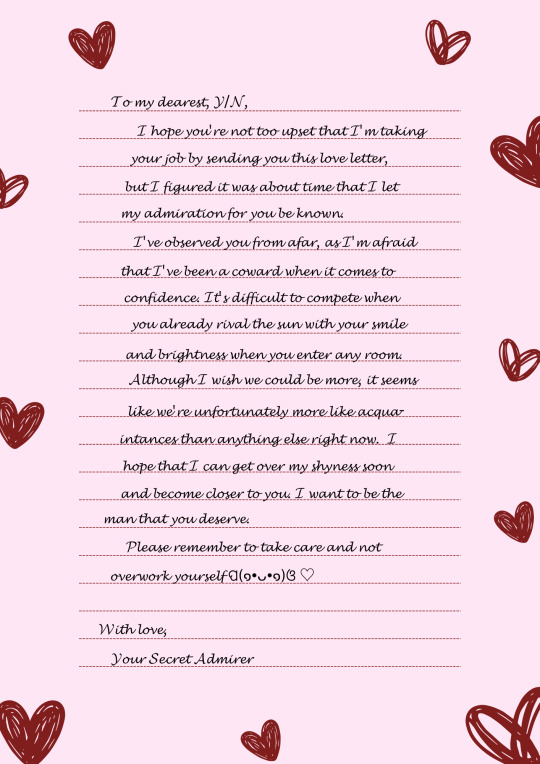 To my dearest, Y/N,
I hope you're not too upset that I'm taking
your job by sending you this love letter,
but I figured it was about time that I let
my admiration for you be known.
I've observed you from afar, as I'm afraid
that I've been a coward when it comes to
confidence. It's difficult to compete when
you already rival the sun with your smile
and brightness when you enter any room.
Although I wish we could be more, it seems
like we're unfortunately more like acqua-
intances than anything else right now. I
hope that I can get over my shyness soon
and become closer to you. I want to be the
man that you deserve.
Please remember to take care and not
overwork yourselfᗡ(໑•ᴗ•໑)ᘐ ♡
With love,
Your Secret Admirer